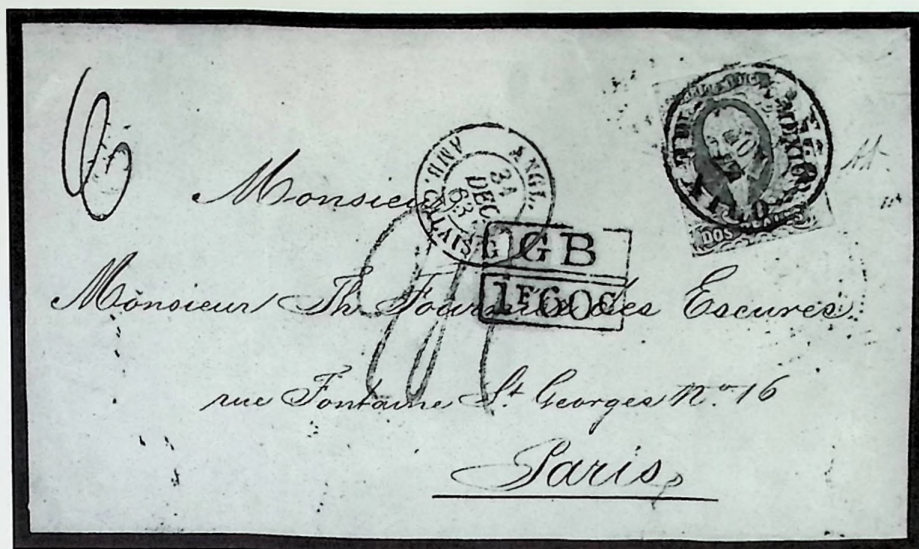 ANGL.
31
DEC.
63
AMB. CALAIS G
MEXICO
DOS REALES
Monsieur
GB
1F60c
Monsieur Th. Fournier des Escures
rue Fontaine St Georges No. 16
Paris